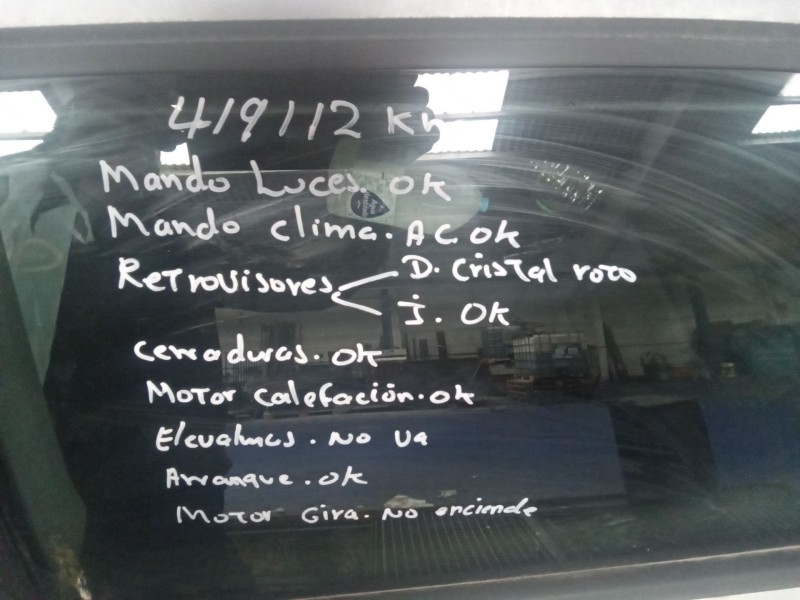 419112 Km
Mando Luces. OK
Mando clima. AC. OK
Retrovisores < D. Cristal roto
j. OK
Cerraduras. OK
Motor Calefación. OK
Elevalunas. No va
Arranque. OK
Motor Gira. No enciende